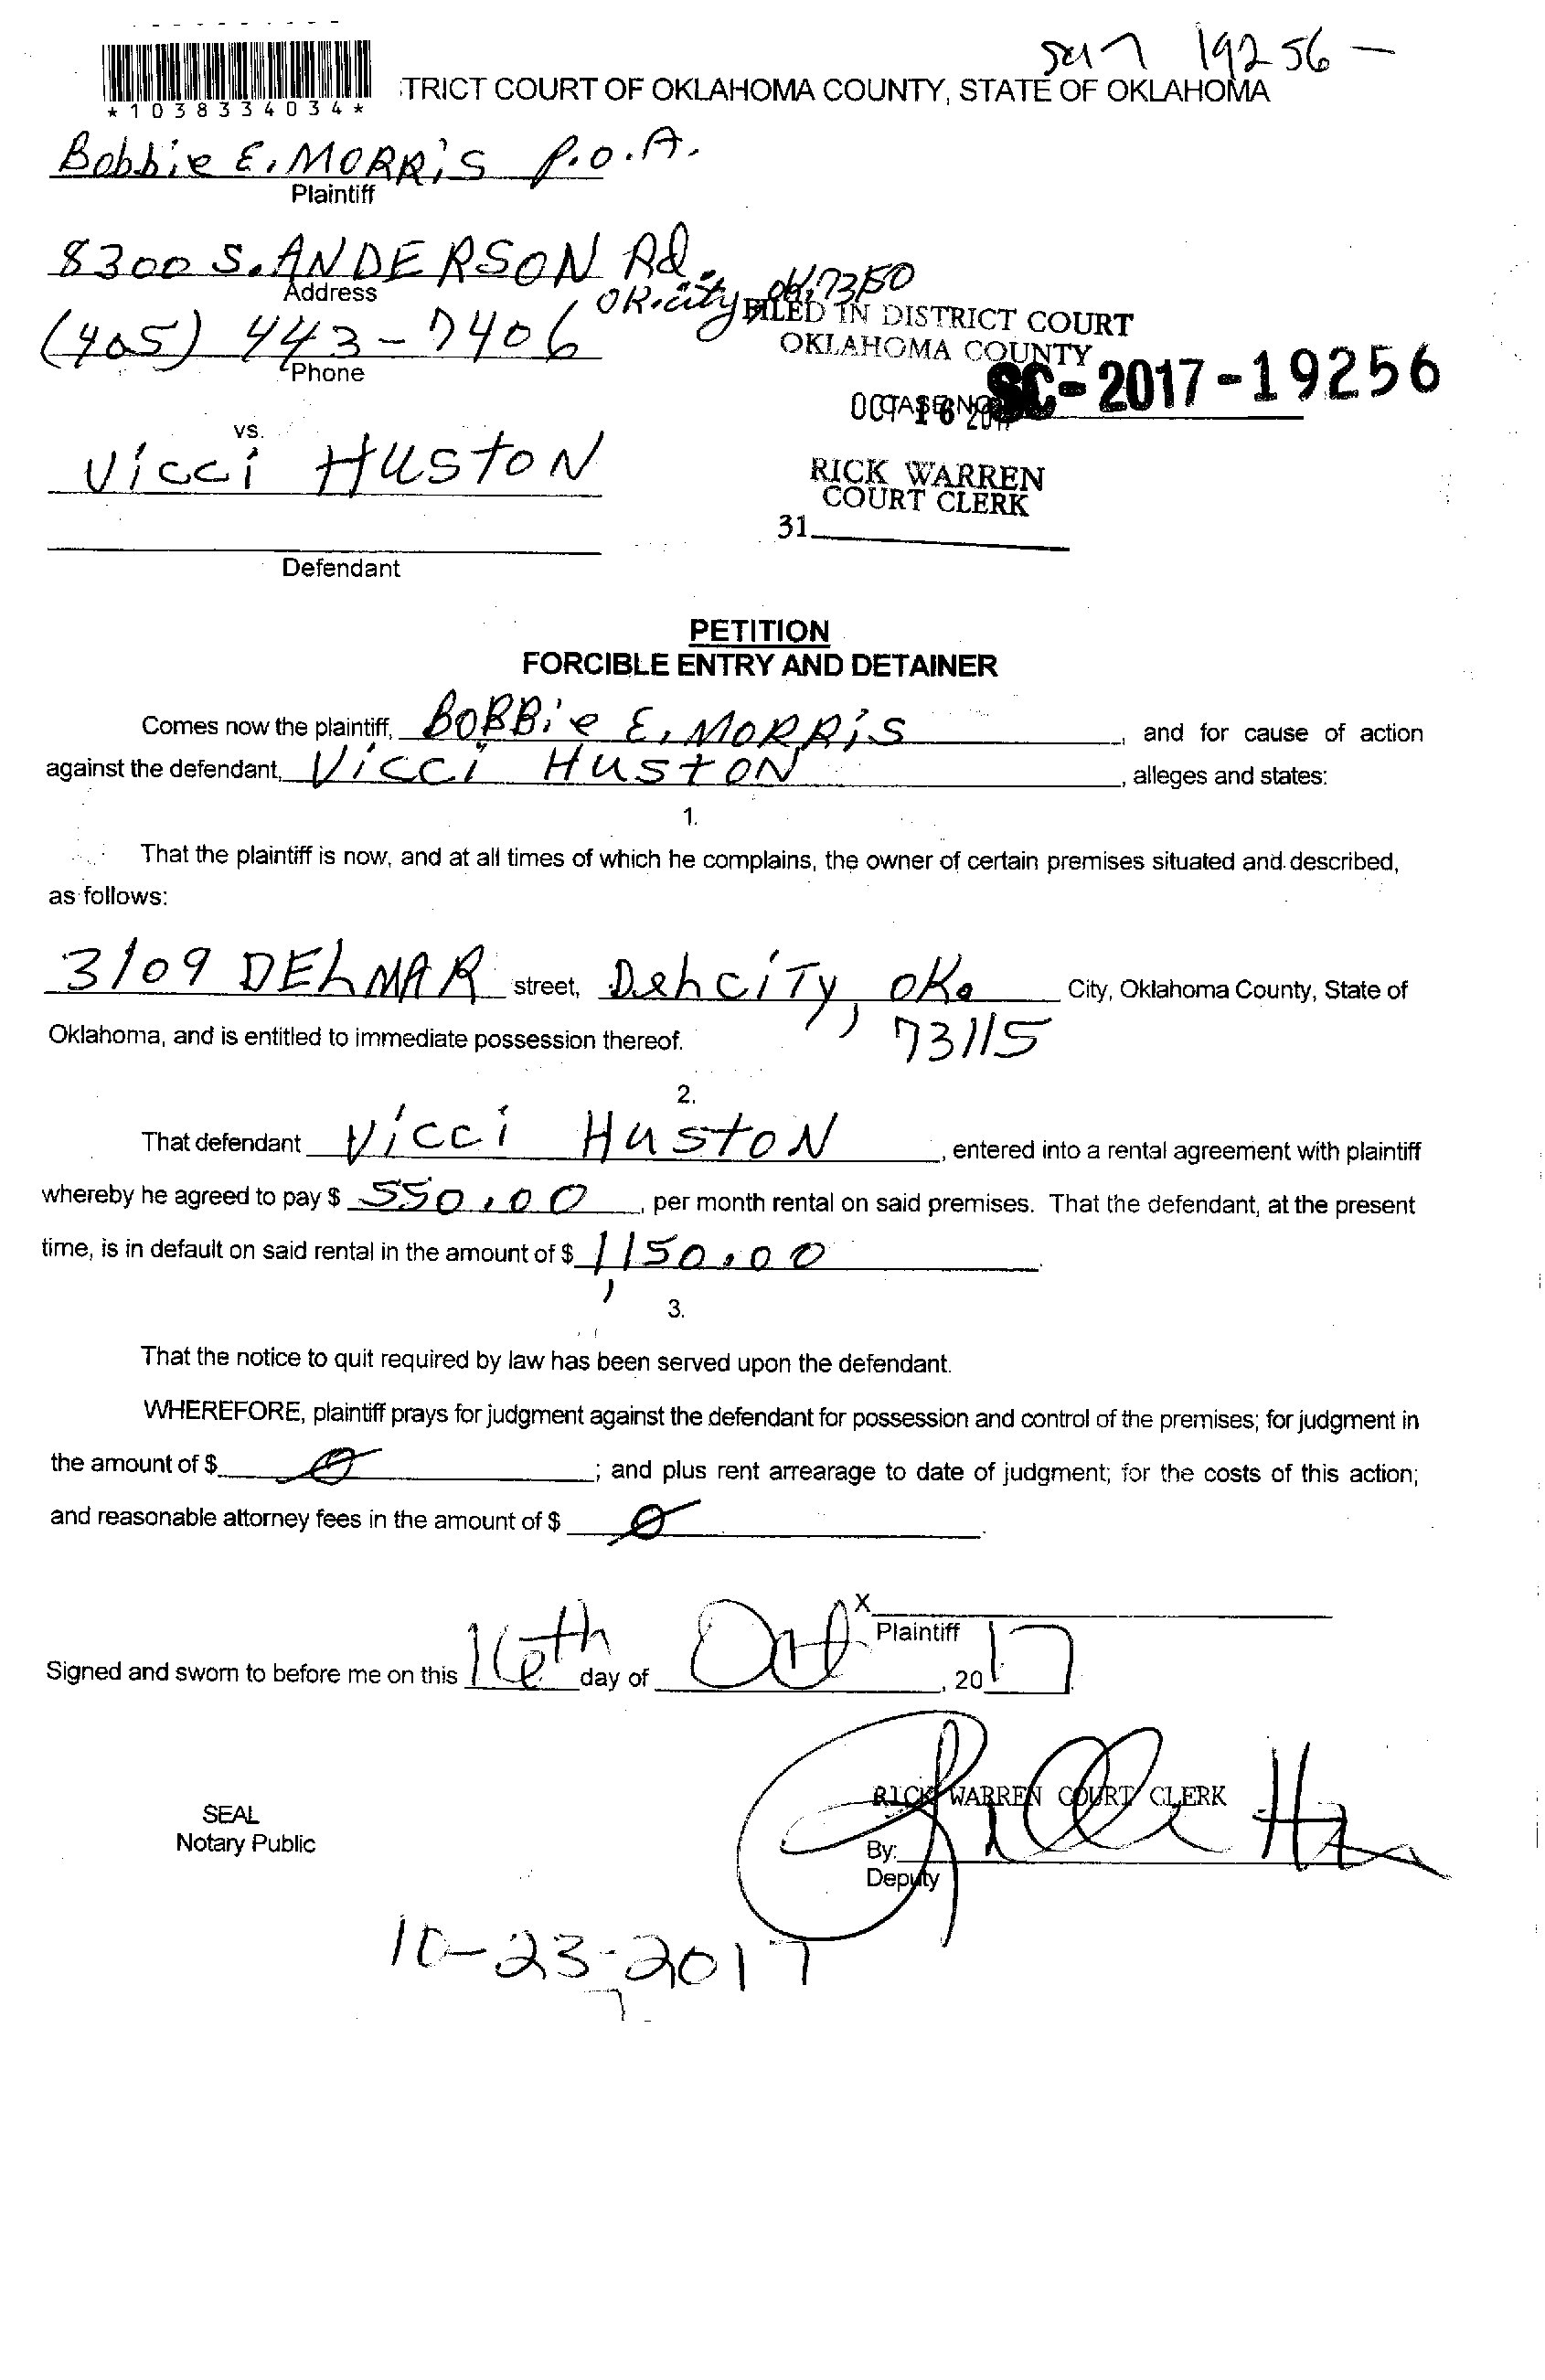 19256 —
TRICT COURT OF OKLAHOMA COUNTY, STATE OF OKLAHOMA
*1038334034*
Bobbie E. MORRiS P.O.A.
Plaintiff
8300 S. ANDERSON Rd.
Address
OK.city
(405) 443-7406
Phone
FILED IN DISTRICT COURT
OKLAHOMA COUNTY
CASE NO. SC-2017-19256
OCT 16 2017
vs.
Vicci HUSTON
RICK WARREN
COURT CLERK
31
Defendant
PETITION
FORCIBLE ENTRY AND DETAINER
Comes now the plaintiff, BOBBie E. MORRiS, and for cause of action
against the defendant, Vicci HUSTON, alleges and states:
1.
That the plaintiff is now, and at all times of which he complains, the owner of certain premises situated and described,
as follows:
3109 DELMAR street, Del ciTy, OK. City, Oklahoma County, State of
73115
Oklahoma, and is entitled to immediate possession thereof.
2.
That defendant Vicci HUSTON, entered into a rental agreement with plaintiff
whereby he agreed to pay $ 550.00, per month rental on said premises. That the defendant, at the present
time, is in default on said rental in the amount of $ 1,150.00.
3.
That the notice to quit required by law has been served upon the defendant.
WHEREFORE, plaintiff prays for judgment against the defendant for possession and control of the premises; for judgment in
the amount of $ 0; and plus rent arrearage to date of judgment; for the costs of this action;
and reasonable attorney fees in the amount of $ 0.
X
Plaintiff
Signed and sworn to before me on this 16th day of Oct, 2017
RICK WARREN COURT CLERK
SEAL
Notary Public
By:
Deputy
10-23-2017